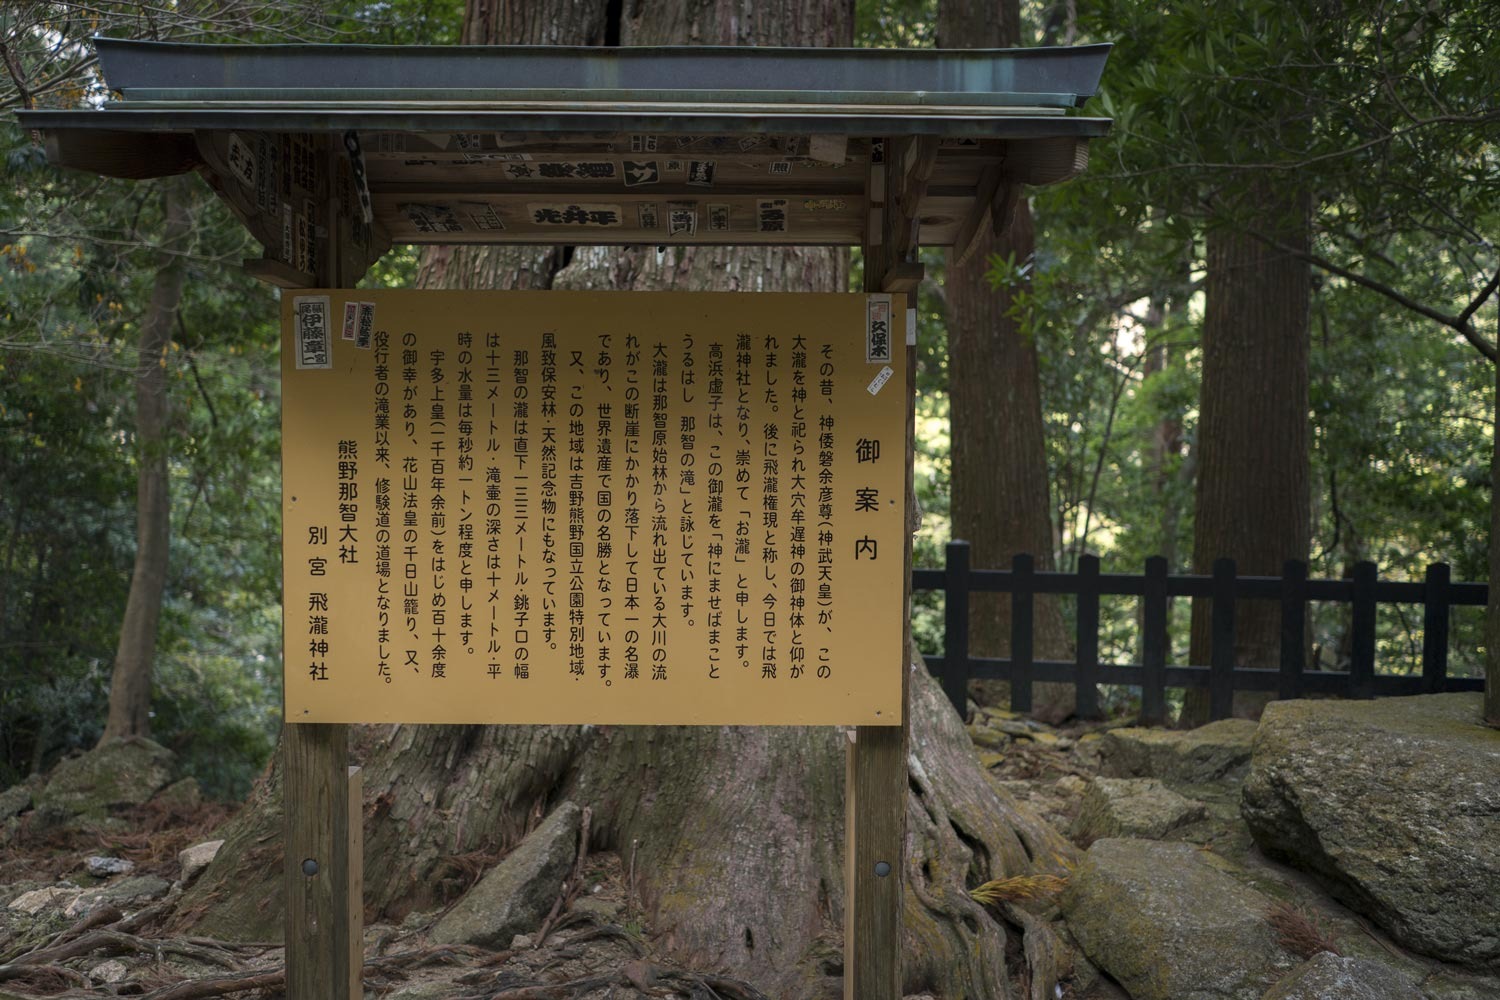 御案内
その昔、神倭磐余彦尊(神武天皇)が、この
大瀧を神と祀られ大穴牟遅神の御神体と仰が
れました。後に飛瀧権現と称し、今日では飛
瀧神社となり、崇めて「お瀧」と申します。
高浜虚子は、この御瀧を「神にませばまこと
うるはし 那智の滝」と詠じています。
大瀧は那智原始林から流れ出ている大川の流
れがこの断崖にかかり落下して日本一の名瀑
であり、世界遺産で国の名勝となっています。
又、この地域は吉野熊野国立公園特別地域・
風致保安林・天然記念物にもなっています。
那智の瀧は直下一三三メートル・銚子口の幅
は十三メートル・滝壷の深さは十メートル・平
時の水量は毎秒約一トン程度と申します。
宇多上皇(一千百年余前)をはじめ百十余度
の御幸があり、花山法皇の千日山籠り、又、
役行者の滝業以来、修験道の道場となりました。
熊野那智大社
別宮 飛瀧神社
伊藤章一
久保木
光井平